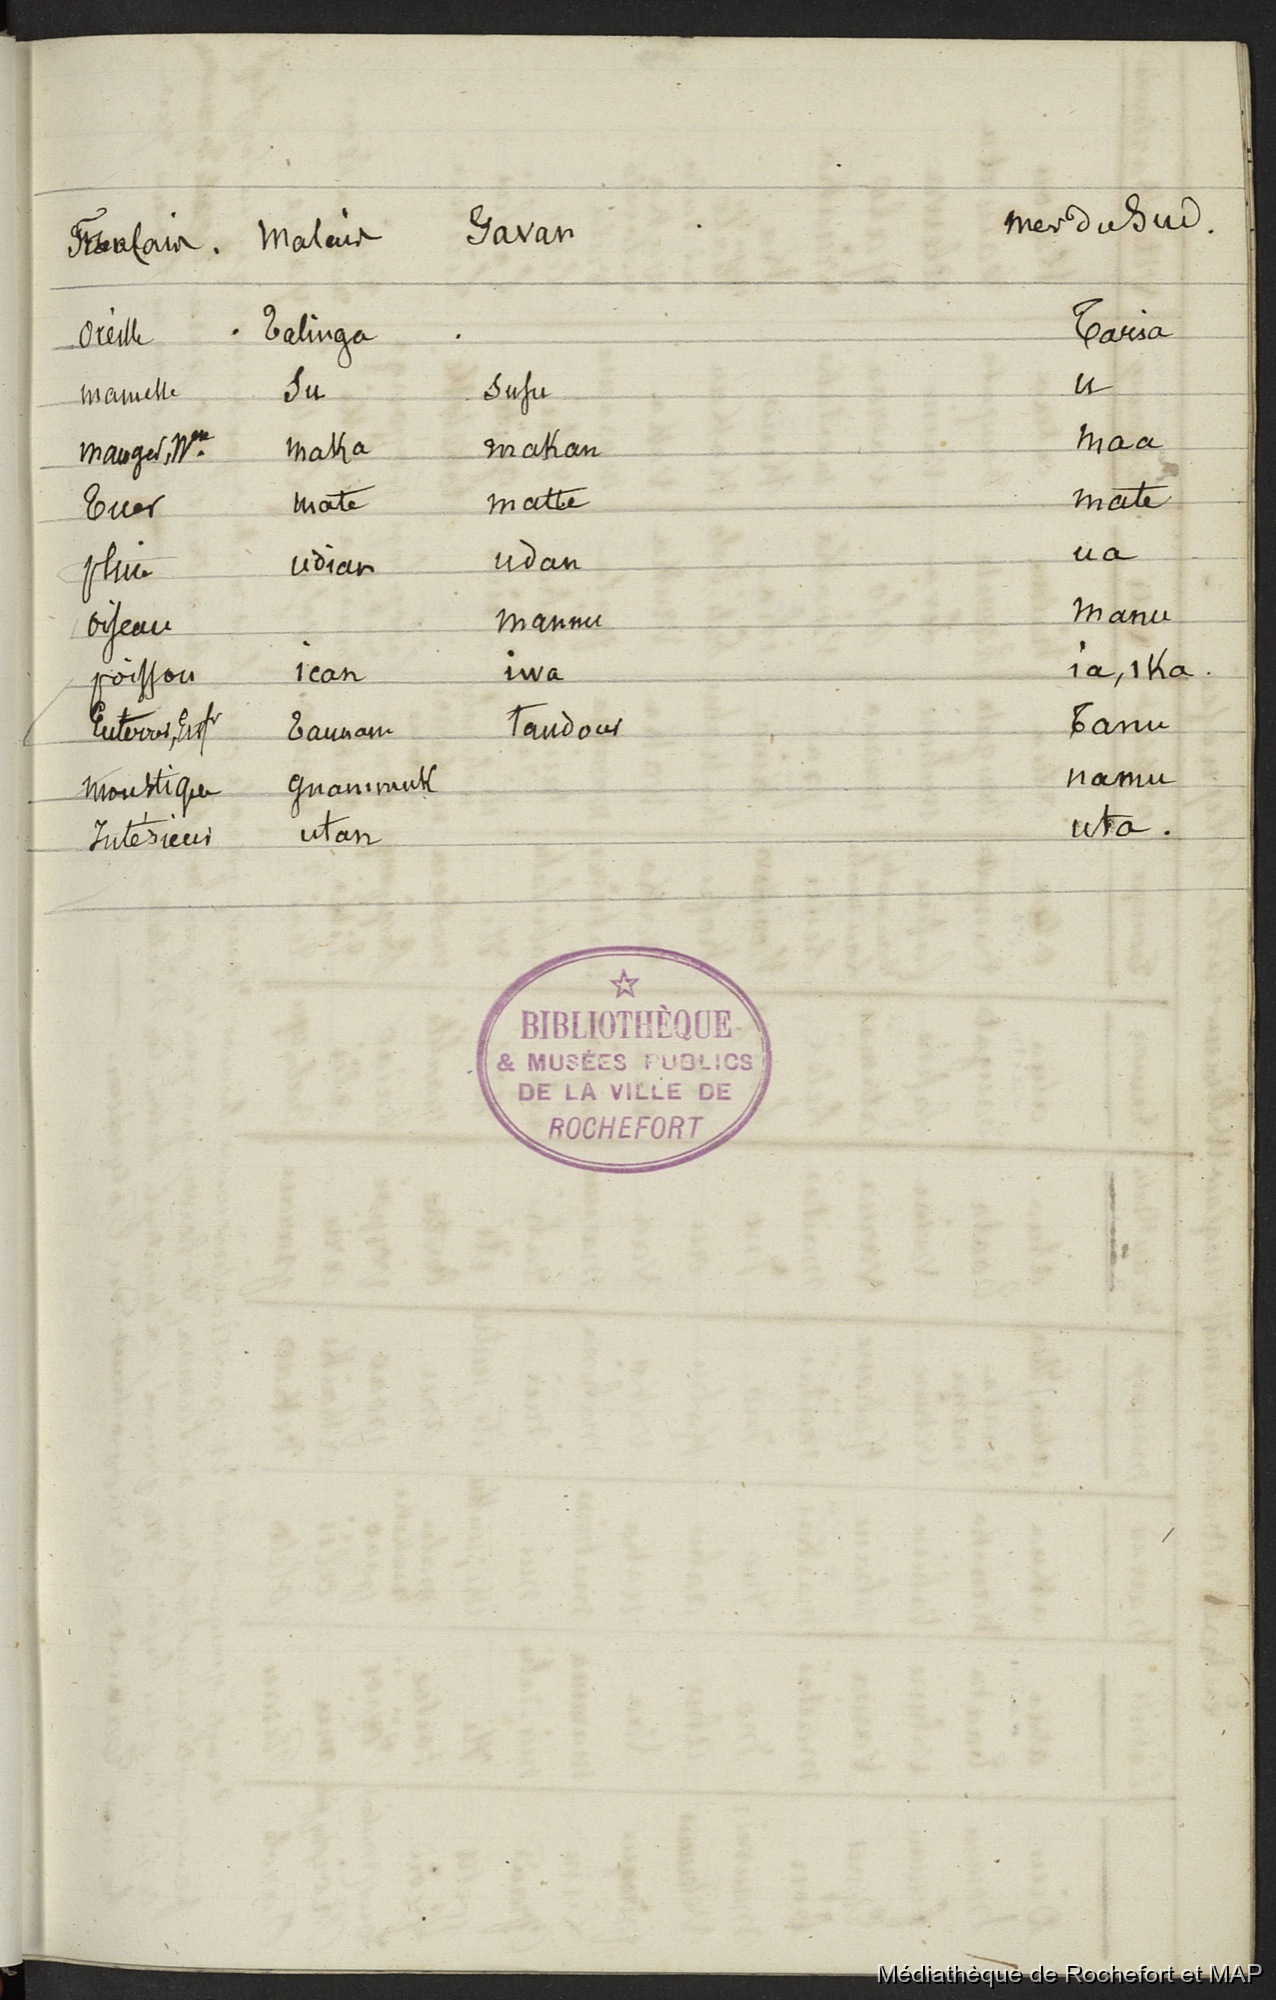 Français. Malais Gavan Mer du Sud.
Oreille Talinga Taria
mamelle Su susu u
manger, Nre maka makan maa
Tuer mate matte mate
pluie udian udan ua
oiseau mannu manu
poisson ican iwa ia, ika.
Enterrer, Enfr Taunam Tandour Tanu
moustique gnammuk namu
Intérieur utan uta.
BIBLIOTHÈQUE
& MUSÉES PUBLICS
DE LA VILLE DE
ROCHEFORT
Médiathèque de Rochefort et MAP